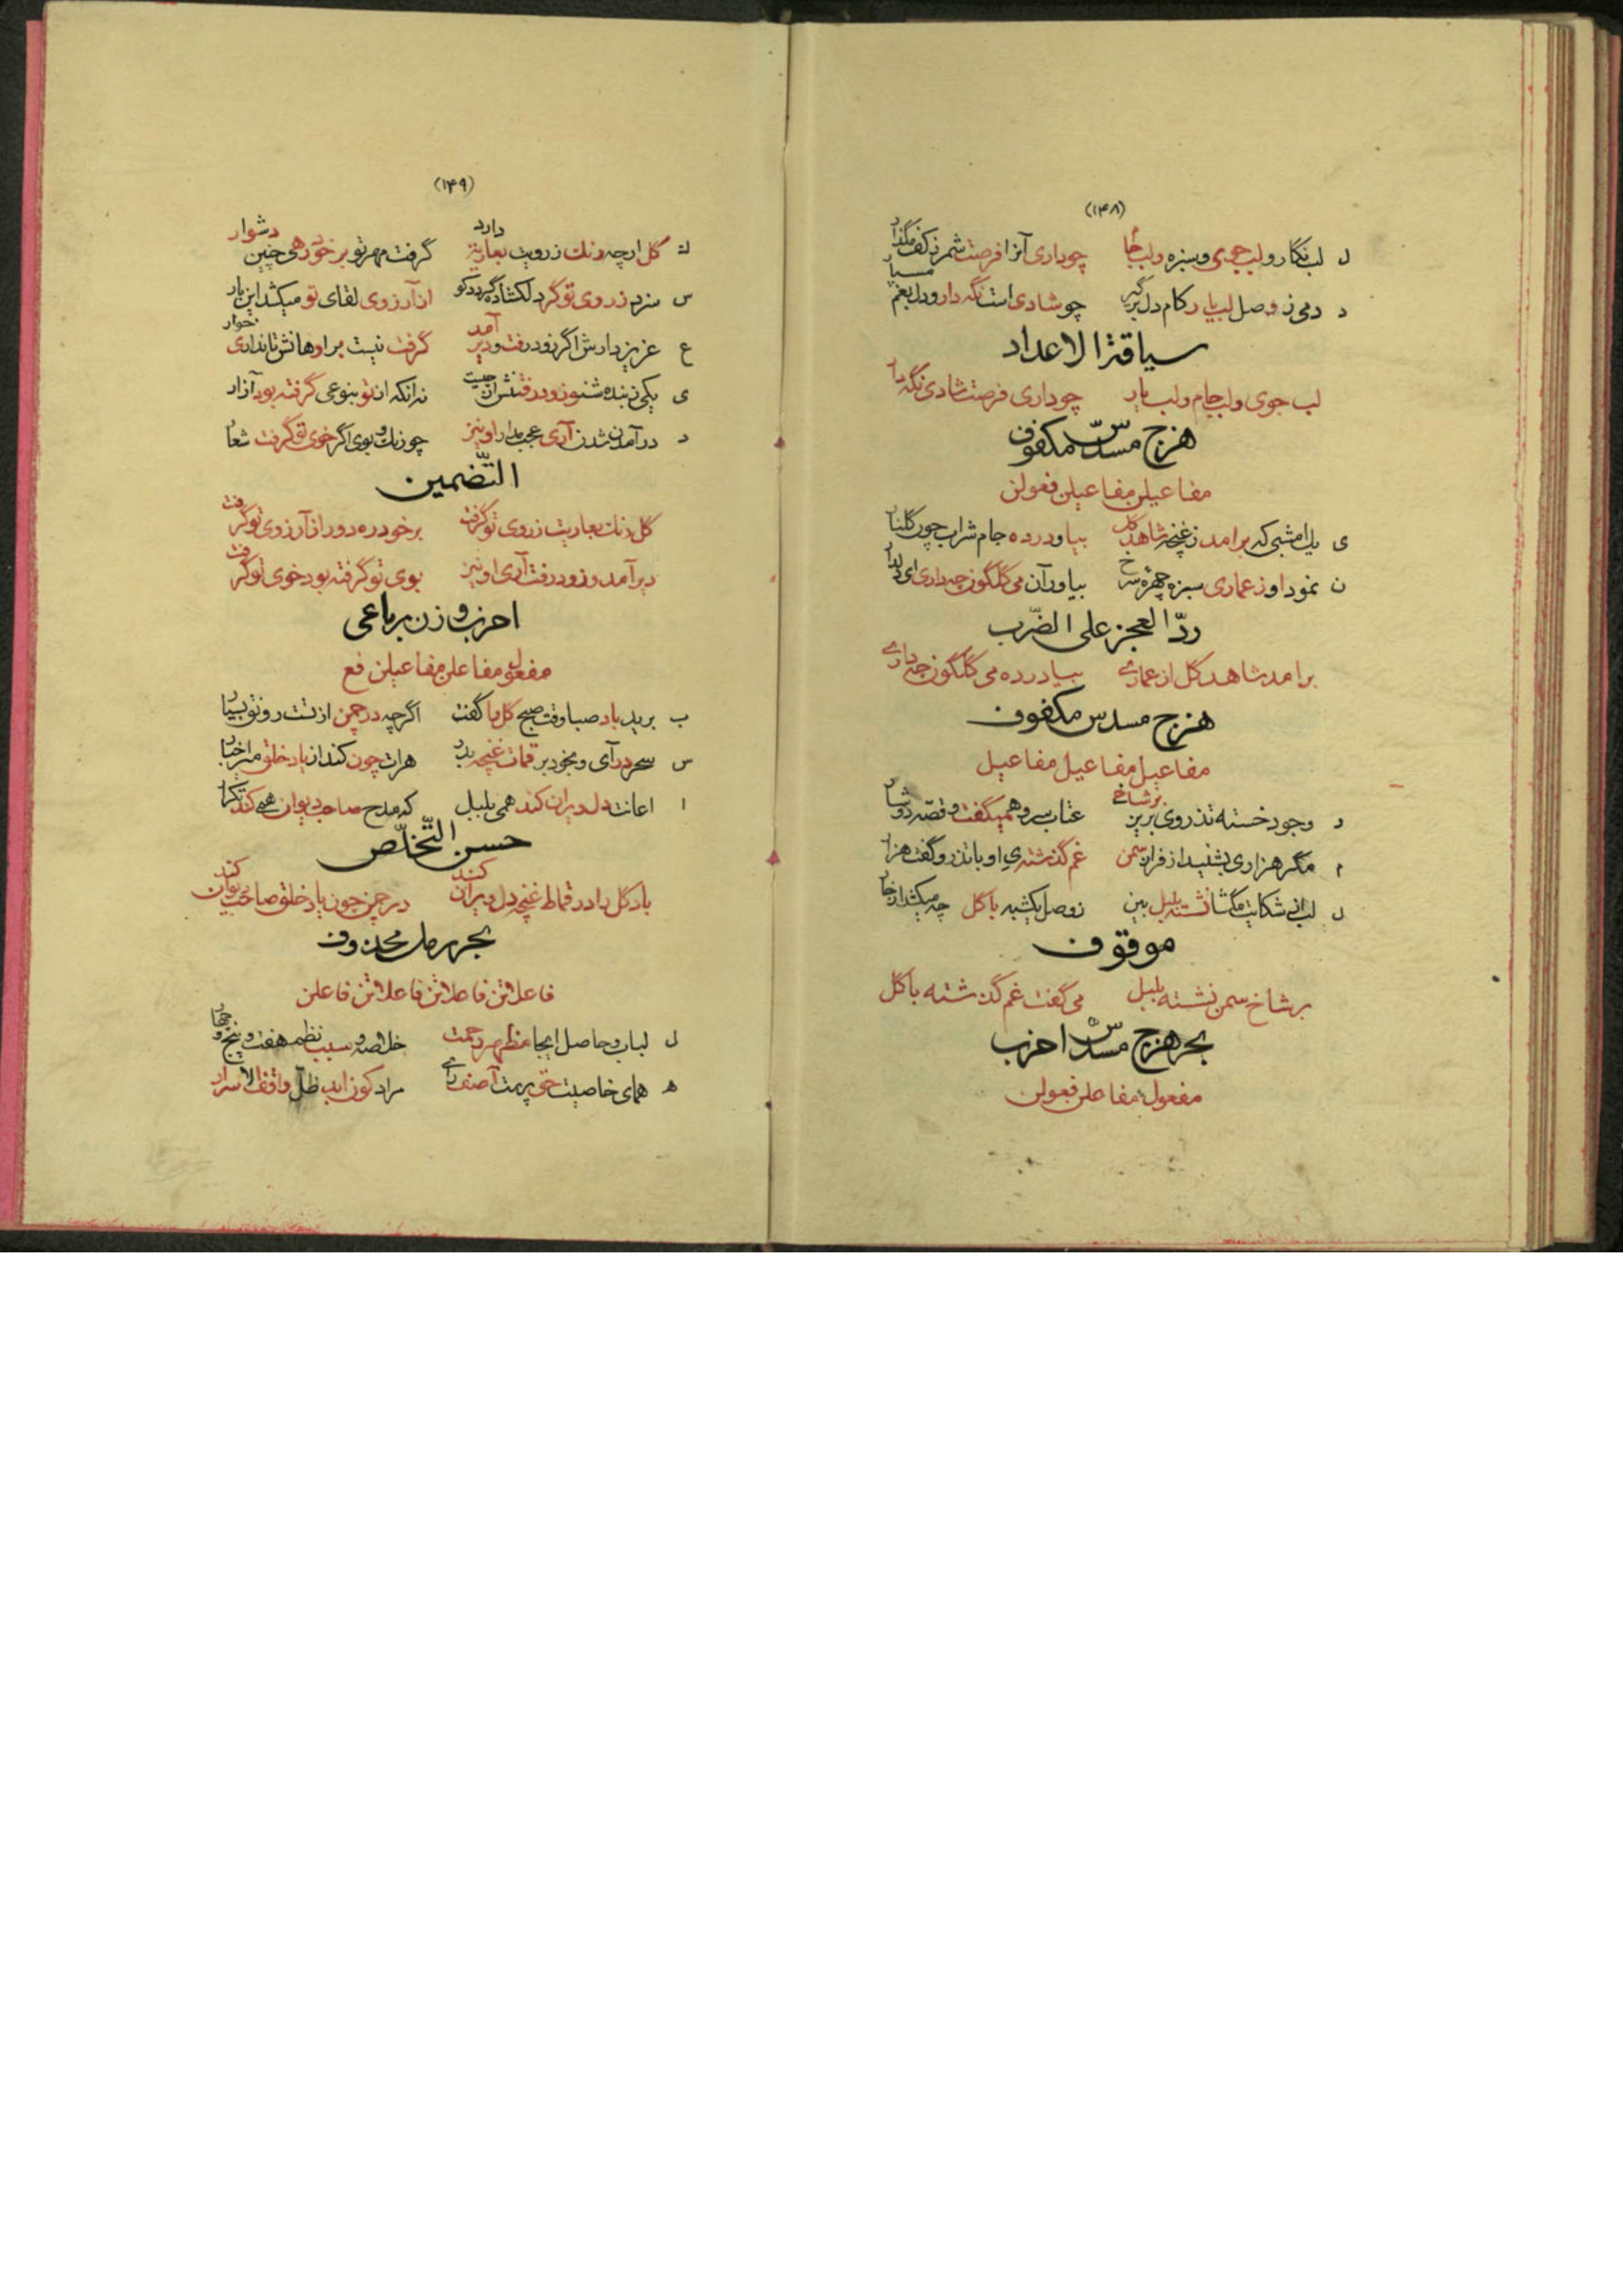 (۱۴۸)
ل لب نگار و لب جوی و سبزه و لب جا چو داری آنرا فرصت شمر ز کف مگذار
د دمی ز وصل لب یار کام دل برگیر چو شادی است نگه دار و دل بغم مسپار
سیاقة الاعداد
لب جوی و لب جام و لب یار چو داری فرصت شادی نگه دار
هزج مسدّس مکفوف
مفاعیلن مفاعیلن فعولن
ی یک امشبی که برامد ز غنچه شاهد گل بیا و در ده جام شراب چون گلنار
ن نمود او ز عماری سبزه چهرهٔ سرخ بیاور آن می گلگون چه داری ای
ردّ العجز علی الضّرب
برامد شاهد گل از عماری بیا در ده می گلگون چه داری
هزج مسدس مکفوف
مفاعیل مفاعیل مفاعیل
د وجود خسته تذروی بزیر بر شاخ عتاب سرو همیگفت و قصّه
م مگر هزاری بشنید از فراز سمن غم گذشته‌ی او با تذرو گفت هزار
ل لب از شکایت مگشا نشسته بلبل بین ز وصل یکشبه با گل چه میکشد از خار
موقوف
بر شاخ سمن نشسته بلبل می گفت غم گذشته با گل
بحر هزج مسدّس اخرب
مفعول مفاعلن فعولن
(۱۴۹)
گل ارچه رنك ز رویت بعاریة دارد گرفت مهر تو بر خود رهی چنین دشوار
س سزد ز روی تو گر دلگشاده گردد کو از آرزوی لقای تو میکشد این بار
ع عزیز دارش اگر زود رفت و دیر آمد گرفت نیست بر او هانش تا نداری خوار
ی یکی ز بنده شنو زود رفتنش از چیست نه زانکه از تو بنوعی گرفته بود آزار
د در آمدن شدن آری عجب مدار او نیز چو رنك و بوی اگر خوی تو گرفت شعار
التّضمین
گل رنك بعاریت ز روی تو گرفت بر خود ره دور از آرزوی تو گرفت
دیر آمد و زود رفت آری او نیز بوی تو گرفته بود خوی تو گرفت
اخرب وزن رباعی
مفعول مفاعلن مفاعیلن فع
ب برید باد صبا وقت صبح گل را گفت اگرچه در چمن از تست رونق بسیار
س سحر در آی و بخود بر قماط غنچه بدر هرات چون کند از یاد خلق مرا
ا اعانت دل ویران کند همی بلبل که مدح صاحب دیوان همی کند تکرار
حسن التّخلّص
باد گل را در قماط غنچه دل ویران کند در چمن چون یاد خلق صاحب دیوان کند
بحر رمل محذوف
فاعلاتن فاعلاتن فاعلاتن فاعلن
ل لباب و حاصل ایجاد مظهر رحمت خلاصه و سبب نظم هفت و پنج و چهار
ه همای خاصیت حق پرست آصف رای مراد کون اید ظلّ واقف الاسرار